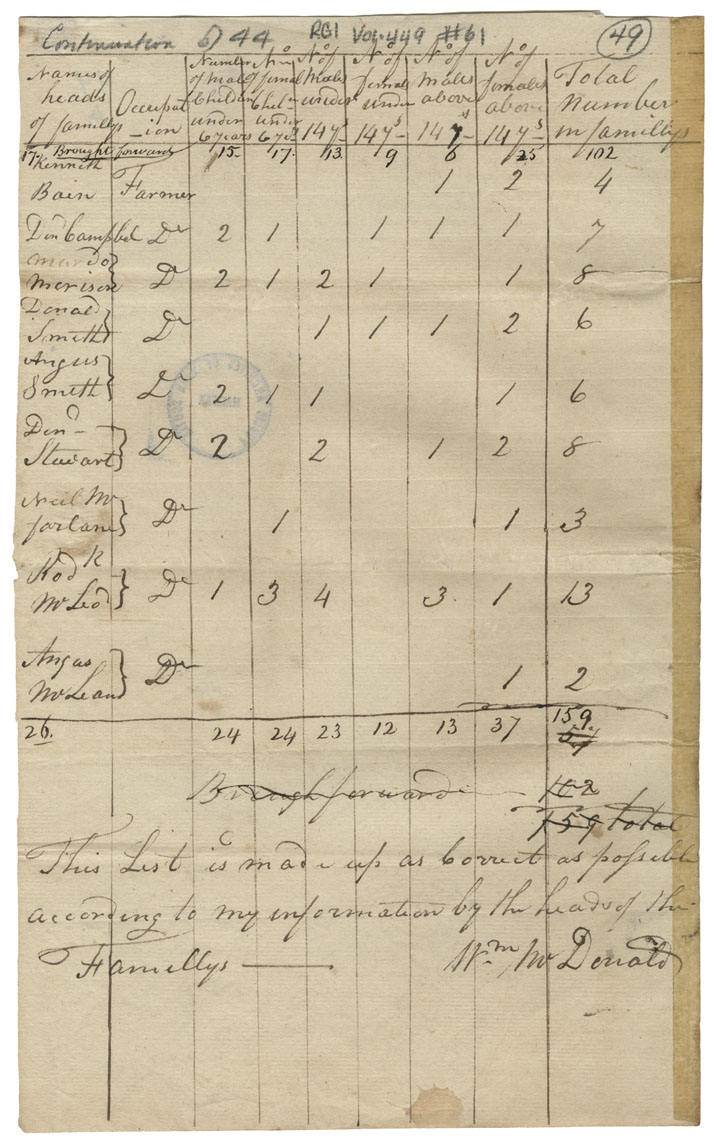 Continuation of 44 RG1 Vol. 449 #61 49
Names of heads of famillys | Occupat-ion | Number of male Children under 6 years | No. of female Chel.n under 6 yrs | No of Males under 14 ys | No of females under 14 ys | No of Males above 14 ys | No of females above 14 ys | Total Number in famillys
17. Brought forward 15. 17. 13 9 6 25 102
Kenneth
Bain Farmer 1 2 4
Don Campbel Do 2 1 1 1 1 7
Murdo
Merison Do 2 1 2 1 1 8
Donald
Smith Do 1 1 1 2 6
Angus
Smeth Do 2 1 1 1 6
Don
Stewart Do 2 2 1 2 8
Neil Mc
farlane Do 1 1 3
Rodk
McLeod Do 1 3 4 3. 1 13
Angus
McLean Do 1 2
26. 24 24 23 12 13 37 159
57
Brough forward 102
159 total
This List is made up as Correct as possible
according to my information by the heads of the
Famellys — Wm McDonald